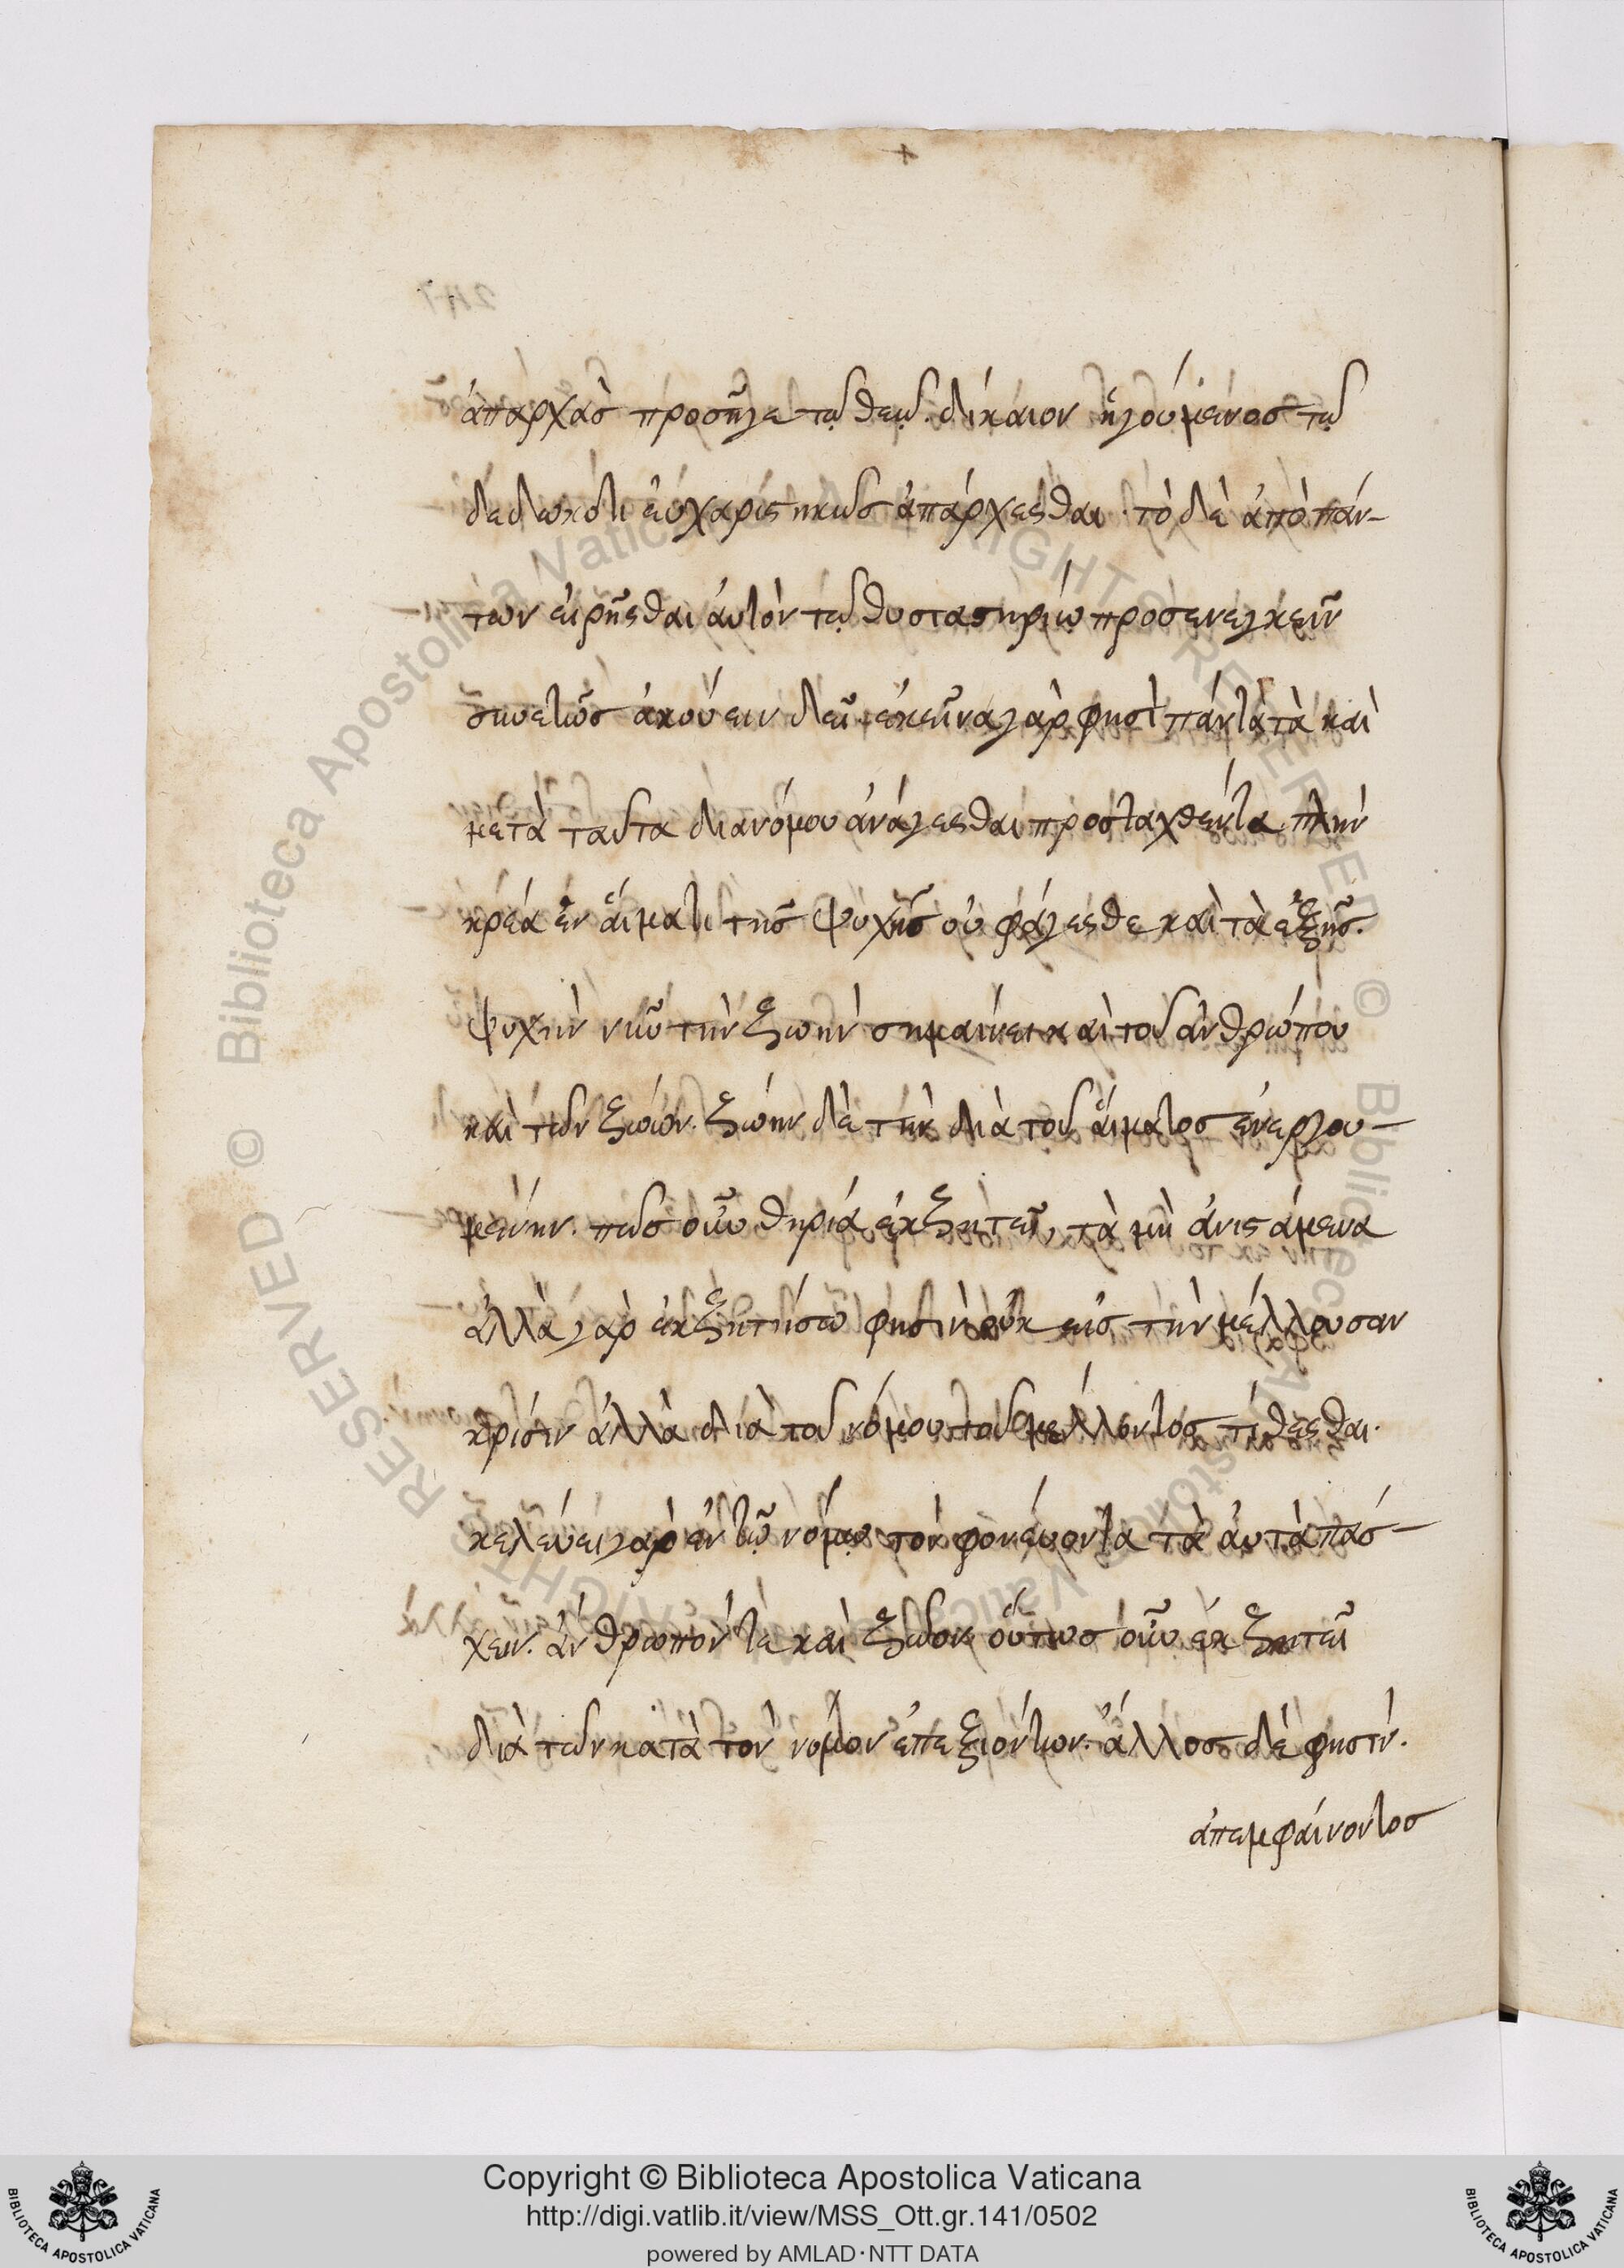 ἀπαρχὰς προσῆγε τῷ θεῷ. δίκαιον ἡγούμενος τῷ
δεδωκότι εὐχαριστικῶς ἀπάρχεσθαι. τὸ δὲ ἀπὸ πάν-
των εἰρῆσθαι αὐτὸν τῷ θυσιαστηρίῳ προσενεγκεῖν
συνετῶς ἀκούειν δεῖ ἐκεῖνα γὰρ φησὶ πάντα τὰ καὶ
μετὰ ταῦτα διανόμου ἀνάγεσθαι προσταχθέντα. πλὴν
κρέα ἐν αἵματι τῆς ψυχῆς οὐ φάγεσθε καὶ τὰ ἑξῆς.
ψυχὴν νῦν τὴν ζωὴν σημαίνει καὶ τοῦ ἀνθρώπου
καὶ τῶν ζώων. ζωὴν δὲ τὴν διὰ τοῦ αἵματος ἐνεργου-
μένην. πῶς οὖν θηρία ἐκζητεῖ, τὰ μὴ ἀνιστάμενα
ἀλλὰ γὰρ ἐκζητήσω φησὶν οὐκ εἰς τὴν μέλλουσαν
κρίσιν ἀλλὰ διὰ τοῦ νόμου τοῦ μέλλοντος τίθεσθαι.
κελεύει γὰρ ἐν τῷ νόμῳ τὸν φονεύοντα τὰ αὐτὰ πάσ-
χειν. ἄνθρωπόν τε καὶ ζῶον οὕτως οὖν ἐκζητεῖ
διὰ τῶν κατὰ τὸν νόμον ἐπεξιόντων. ἄλλος δὲ φησίν.
ἀπεμφαίνοντος
Copyright © Biblioteca Apostolica Vaticana
http://digi.vatlib.it/view/MSS_Ott.gr.141/0502
powered by AMLAD·NTT DATA
BIBLIOTECA APOSTOLICA VATICANA
BIBLIOTECA APOSTOLICA VATICANA